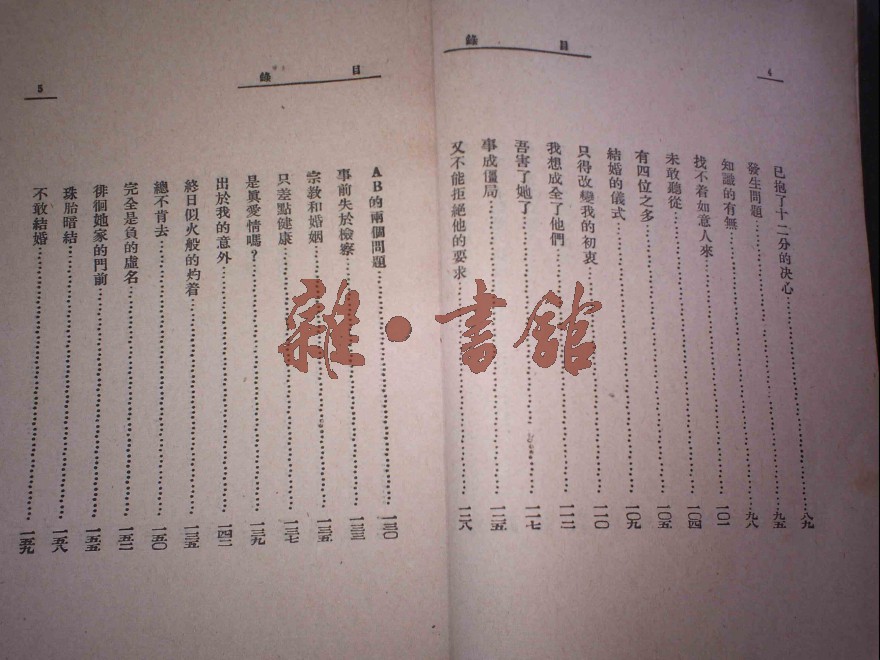 4
目錄
已抱了十二分的决心……八九
發生問題……九五
知識的有無……九八
找不着如意人來……一〇一
未敢聽從……一〇四
有四位之多……一〇五
結婚的儀式……一〇九
只得改變我的初衷……一一〇
我想成全了他們……一一二
吾害了她了……一一七
事成僵局……一二五
又不能拒絕他的要求……一二八
目錄
5
AB的兩個問題……一三〇
事前失於檢察……一三三
宗教和婚姻……一三五
只差點健康……一三七
是眞愛情嗎?……一三九
出於我的意外……一四二
終日似火般的灼着……一三五
總不肯去……一五〇
完全是負的虛名……一五二
徘徊她家的門前……一五五
珠胎暗結……一五八
不敢結婚……一五九
雜·書館